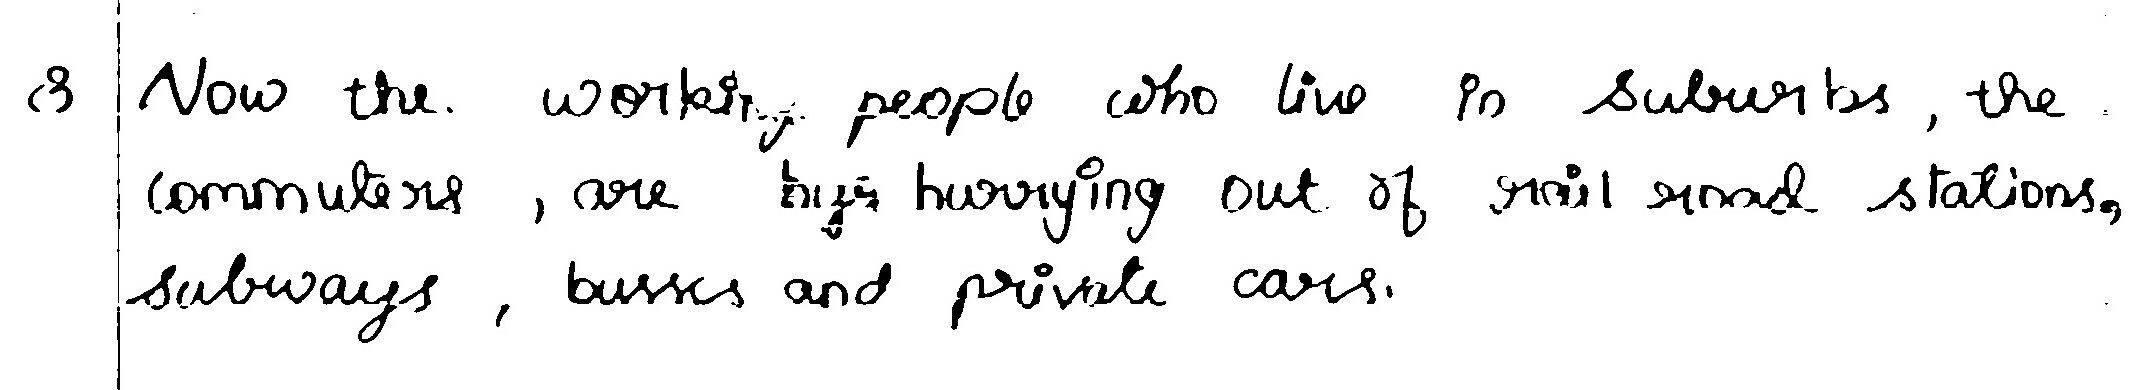 3 Now the working people who live in suburbs, the
commuters, are hurrying out of rail road stations,
subways, busses and private cars.